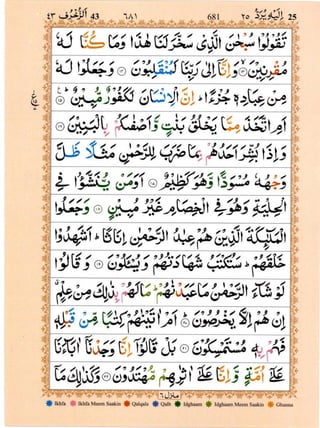 اَلزُّخْرُف ٤٣ 43 ٦٨١ 681 اِلَیْهِ یُرَدُّ ٢٥ 25
تَقُوْلُوْا سُبْحٰنَ الَّذِیْ سَخَّرَ لَنَا هٰذَا وَمَا كُنَّا لَهٗ
مُقْرِنِیْنَ ۙ﴿۱۳﴾ وَاِنَّاۤ اِلٰی رَبِّنَا لَمُنْقَلِبُوْنَ ﴿۱۴﴾ وَجَعَلُوْا لَهٗ
مِنْ عِبَادِهٖ جُزْءًا ؕ اِنَّ الْاِنْسَانَ لَكَفُوْرٌ مُّبِیْنٌ ﴿۱۵﴾ؕ
اَمِ اتَّخَذَ مِمَّا یَخْلُقُ بَنٰتٍ وَّاَصْفٰىكُمْ بِالْبَنِیْنَ ﴿۱۶﴾
وَاِذَا بُشِّرَ اَحَدُهُمْ بِمَا ضَرَبَ لِلرَّحْمٰنِ مَثَلًا ظَلَّ
وَجْهُهٗ مُسْوَدًّا وَّهُوَ كَظِیْمٌ ﴿۱۷﴾ اَوَمَنْ یُّنَشَّؤُا فِی
الْحِلْیَةِ وَهُوَ فِی الْخِصَامِ غَیْرُ مُبِیْنٍ ﴿۱۸﴾ وَجَعَلُوا
الْمَلٰٓىِٕكَةَ الَّذِیْنَ هُمْ عِبٰدُ الرَّحْمٰنِ اِنَاثًا ؕ اَشَهِدُوْا
خَلْقَهُمْ ؕ سَتُكْتَبُ شَهَادَتُهُمْ وَیُسْـَٔلُوْنَ ﴿۱۹﴾ وَقَالُوْا
لَوْ شَآءَ الرَّحْمٰنُ مَا عَبَدْنٰهُمْ ؕ مَا لَهُمْ بِذٰلِكَ مِنْ عِلْمٍ ۗ
اِنْ هُمْ اِلَّا یَخْرُصُوْنَ ﴿۲۰﴾ؕ اَمْ اٰتَیْنٰهُمْ كِتٰبًا مِّنْ قَبْلِهٖ
فَهُمْ بِهٖ مُسْتَمْسِكُوْنَ ﴿۲۱﴾ بَلْ قَالُوْۤا اِنَّا وَجَدْنَاۤ اٰبَآءَنَا
عَلٰۤی اُمَّةٍ وَّاِنَّا عَلٰۤی اٰثٰرِهِمْ مُّهْتَدُوْنَ ﴿۲۲﴾ وَكَذٰلِكَ مَاۤ
منزل ٦
Ikhfa Ikhfa Meem Saakin Qalqala Qalb Idghaam Idghaam Meem Saakin Ghunna